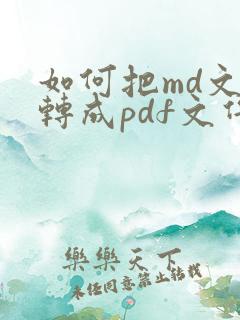 如何把md文
轉成pdf文
樂樂天下
未經同意禁止轉載